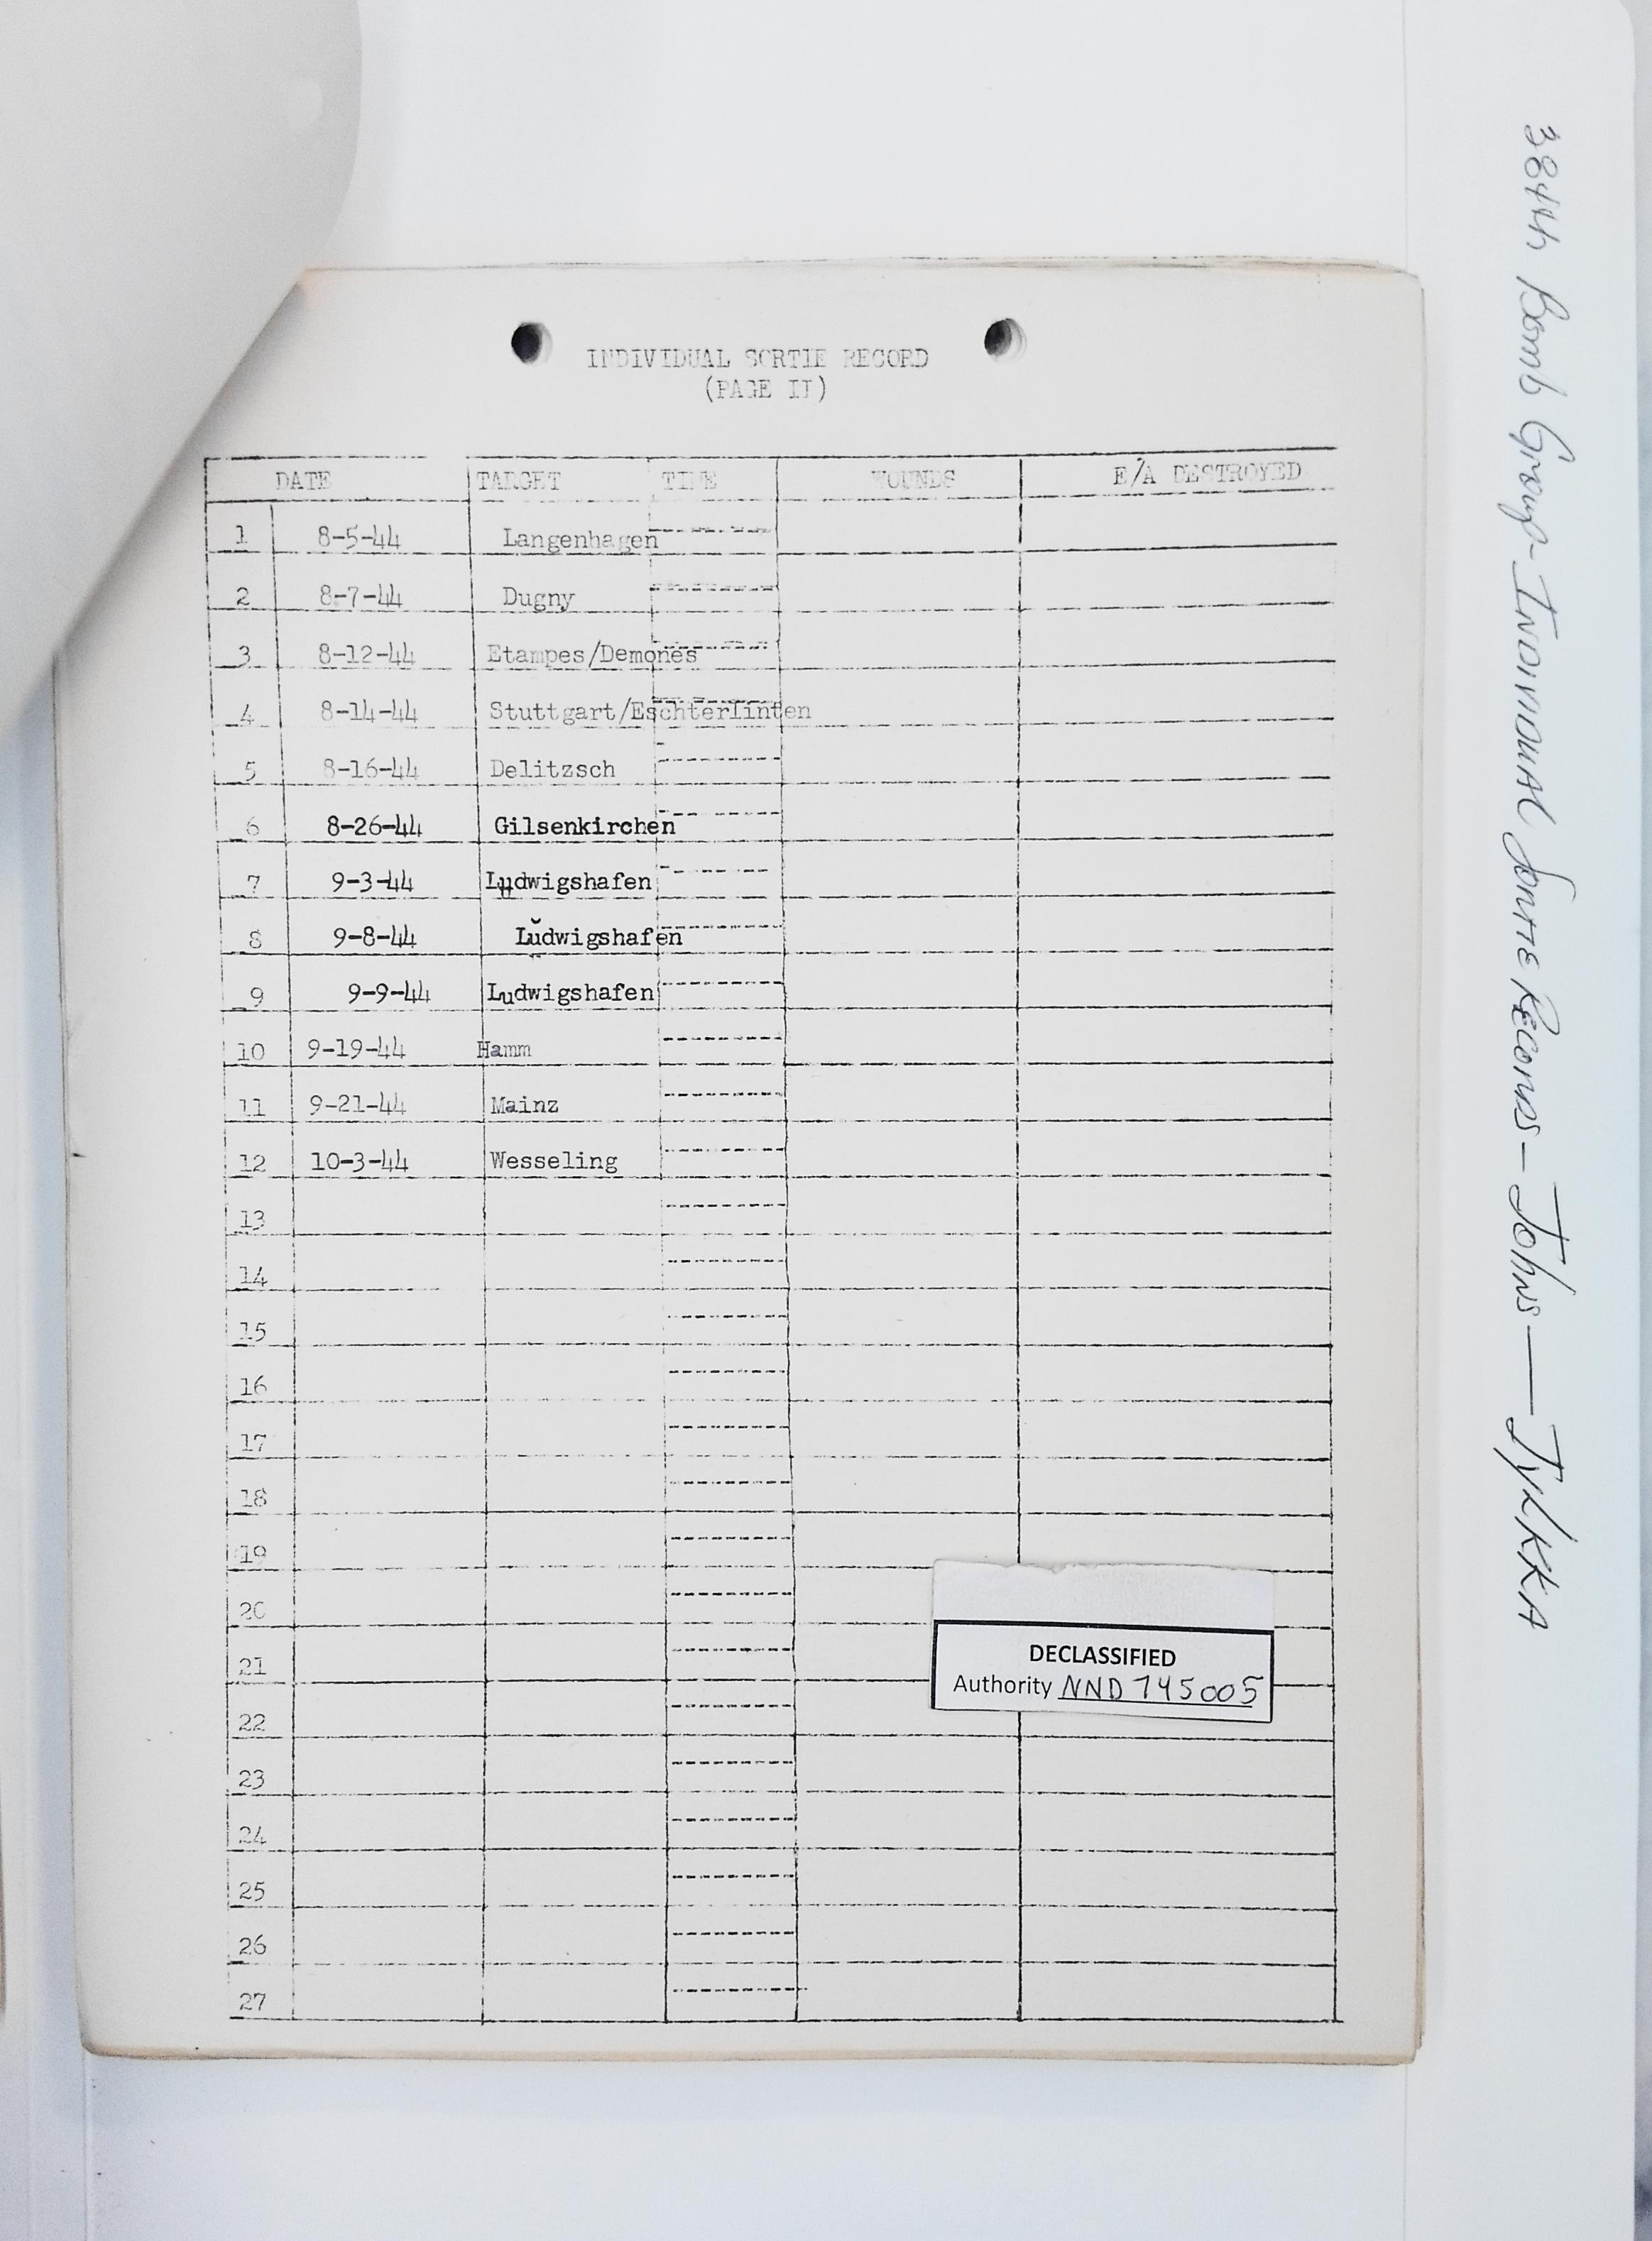 INDIVIDUAL SORTIE RECORD
(PAGE II)
DATE TARGET TIME WOUNDS E/A DESTROYED
1 8-5-44 Langenhagen
2 8-7-44 Dugny
3 8-12-44 Etampes/Demones
4 8-14-44 Stuttgart/Eschterlinten
5 8-16-44 Delitzsch
6 8-26-44 Gilsenkirchen
7 9-3-44 Ludwigshafen
8 9-8-44 Ludwigshafen
9 9-9-44 Ludwigshafen
10 9-19-44 Hamm
11 9-21-44 Mainz
12 10-3-44 Wesseling
13
14
15
16
17
18
19
20
21
22
23
24
25
26
27
DECLASSIFIED
Authority NND 745005
384th Bomb Group - INDIVIDUAL Sortie Records - Johns - Jylkka